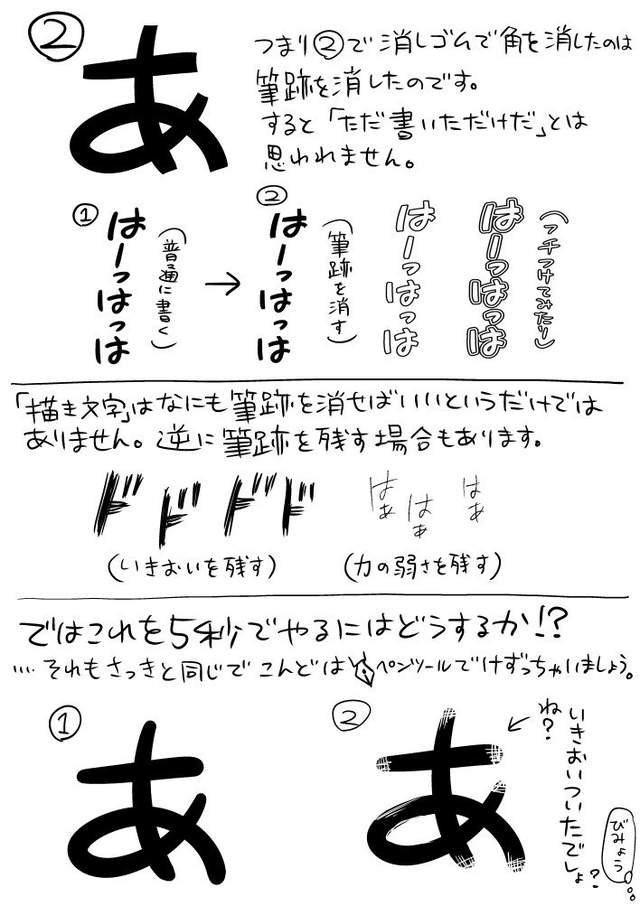 ②
あ
つまり②で消しゴムで角を消したのは
筆跡を消したのです。
すると「ただ書いただけだ」とは
思われません。
①
はーっはっは
(普通に書く)
→
②
はーっはっは
(筆跡を消す)
はーっはっは
はーっはっは
(フチつけてみたり)
「描き文字」はなにも筆跡を消せばいいというだけでは
ありません。逆に筆跡を残す場合もあります。
ドドドド
(いきおいを残す)
はぁ
はぁ
はぁ
(力の弱さを残す)
ではこれを5秒でやるにはどうするか!?
…それもさっきと同じでこんどはペンツールでけずっちゃいましょう。
①
あ
②
あ
←
ね?
いきおいついたでしょ?
びみょう